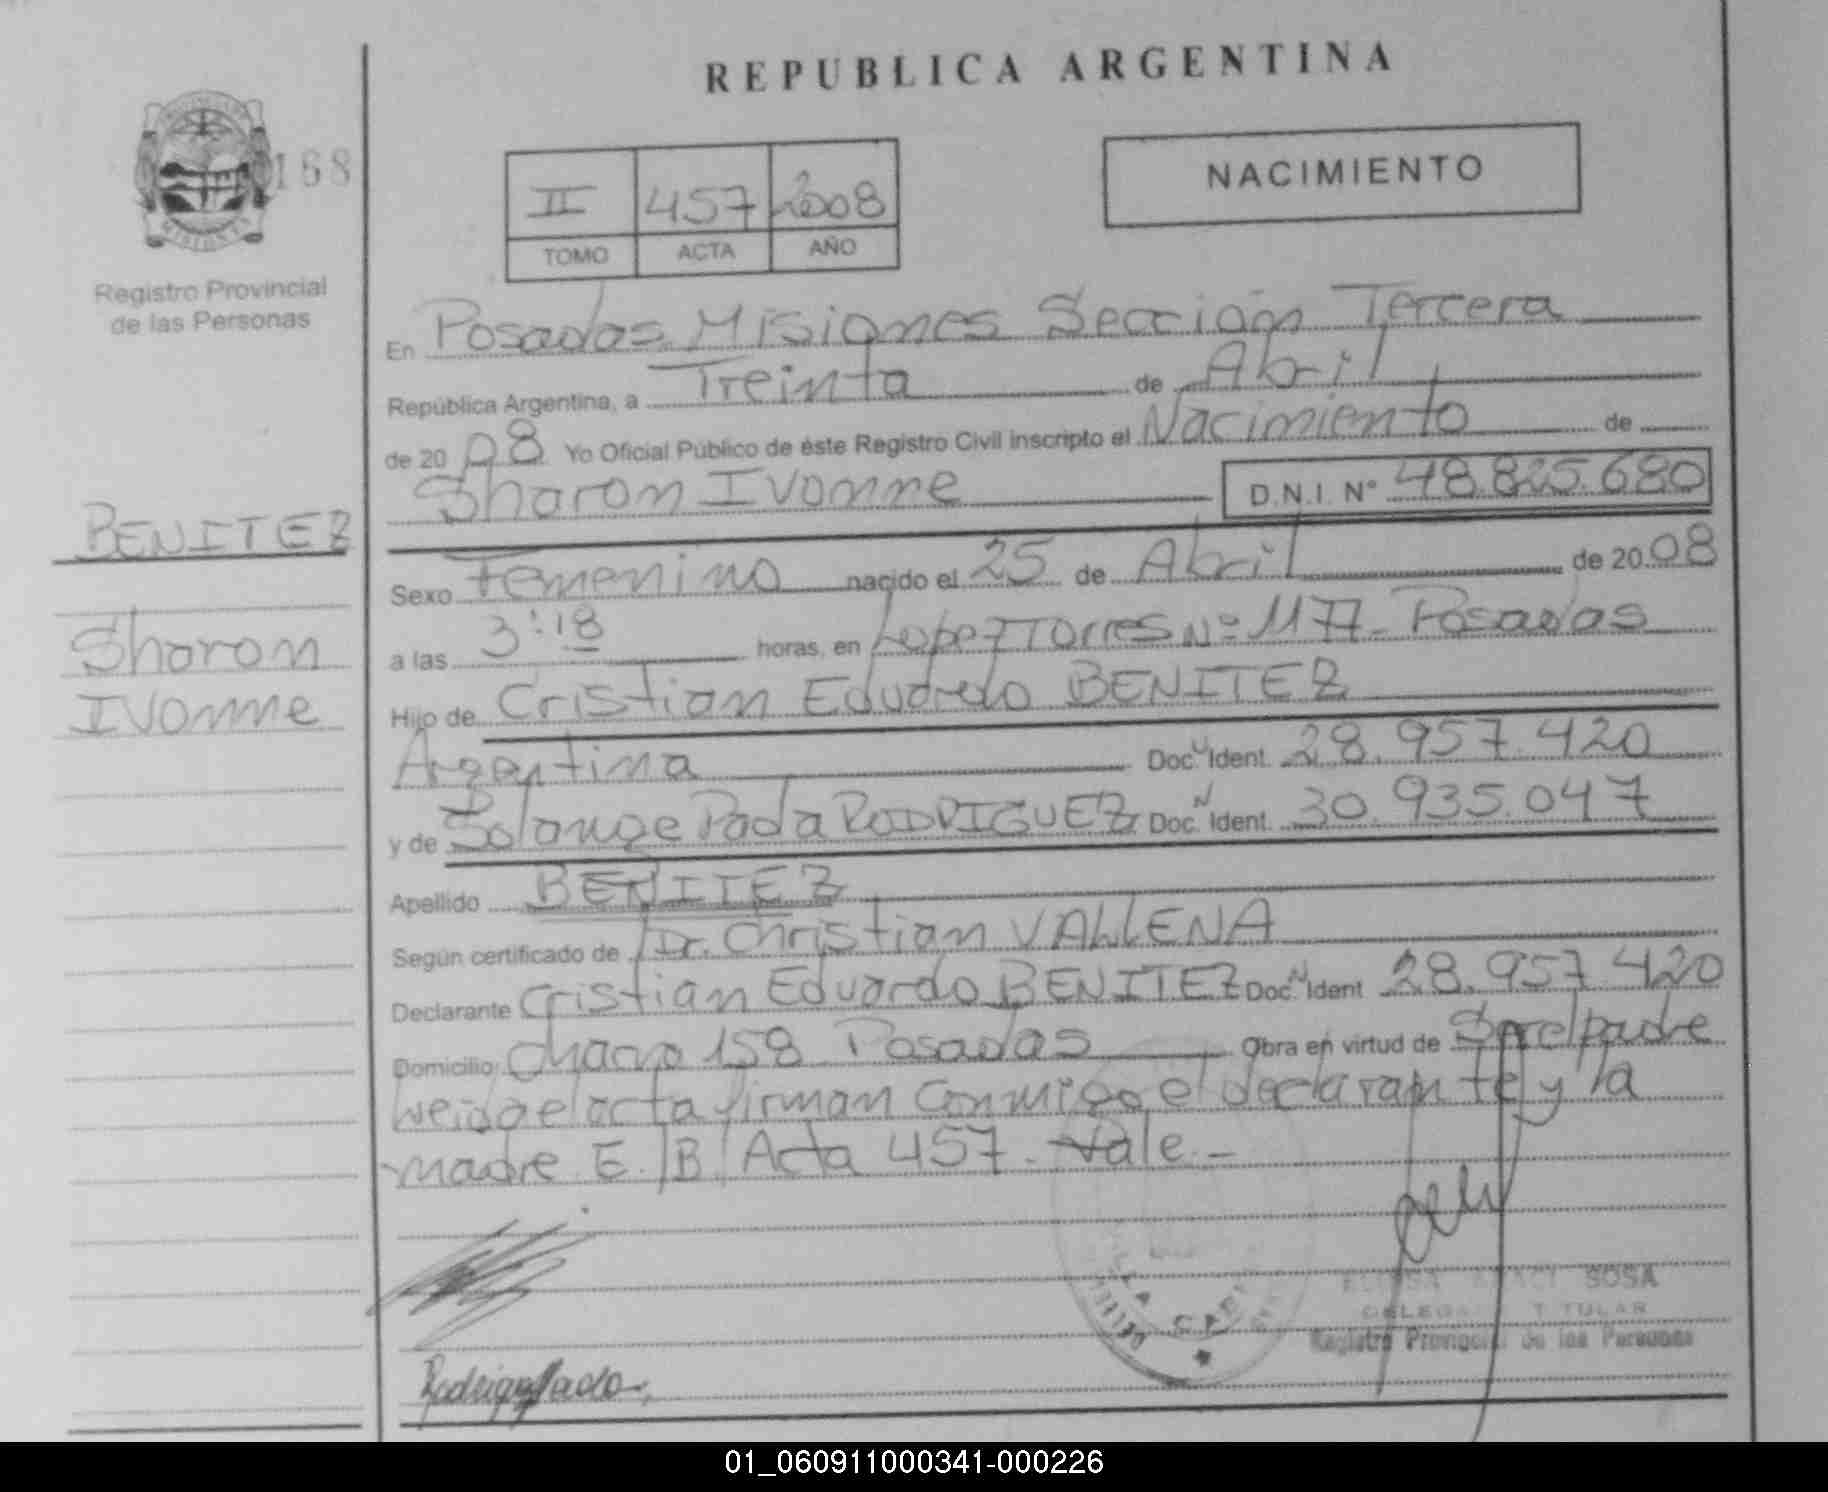 REPUBLICA ARGENTINA
168
II 457 2008
TOMO ACTA AÑO
NACIMIENTO
Registro Provincial
de las Personas
En Posadas Misiones Sección Tercera
República Argentina, a Treinta de Abril
de 2008 Yo Oficial Público de éste Registro Civil inscripto el Nacimiento de
Sharon Ivonne D.N.I. Nº 48.825.680
BENITEZ
Sharon
Ivonne
Sexo Femenino nacido el 25 de Abril de 2008
a las 3:18 horas, en Lopez Torres Nº 1177 - Posadas
Hijo de Cristian Eduardo BENITEZ
Argentina Doc. N Ident. 28.957.420
y de Solange RODRIGUEZ Doc. N Ident. 30.935.047
Apellido BENITEZ
Según certificado de Dr. Christian VALLENA
Declarante Cristian Eduardo BENITEZ Doc. N Ident 28.957.420
Domicilio Chaco 158 Posadas Obra en virtud de Ser el padre
leida el acta firman conmigo el declarante y la
madre E/B/ Acta 457. Vale.-
SOSA
DELEGADA TITULAR
Registro Provincial de las Personas
01_060911000341-000226